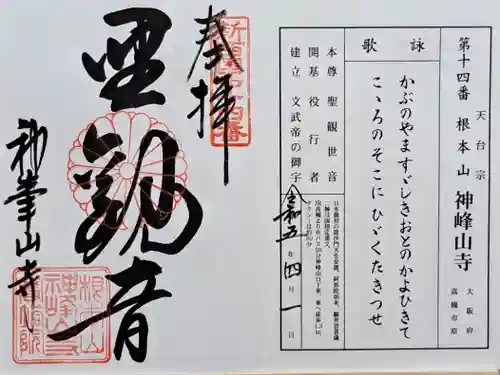 第十四番
天台宗
根本山 神峰山寺
大阪府
高槻市原
詠歌
かぶのやますゞしきおとのかよひきて
こゝろのそこにひゞくたきつせ
本尊 聖観世音
開基 役行者
建立 文武帝の御宇
令和五年四月一日
奉拝
新西国十四番
聖観音
神峯山寺